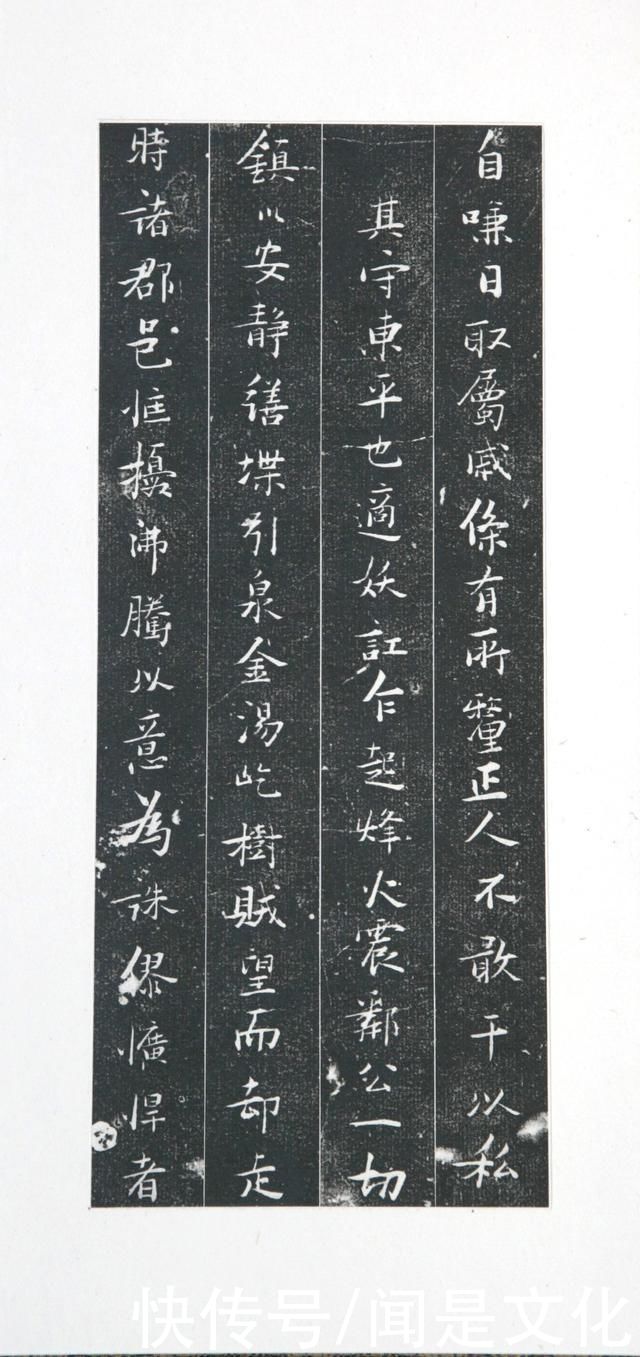 自嗛日取屬戚條有所釐正人不敢干以私
其守東平也適妖訌乍起烽火震鄰公一切
鎮以安靜繕堞引泉金湯屹樹賊望而却走
時諸郡邑恇擾沸騰以意為誅僇獷悍者
快传号/闻是文化